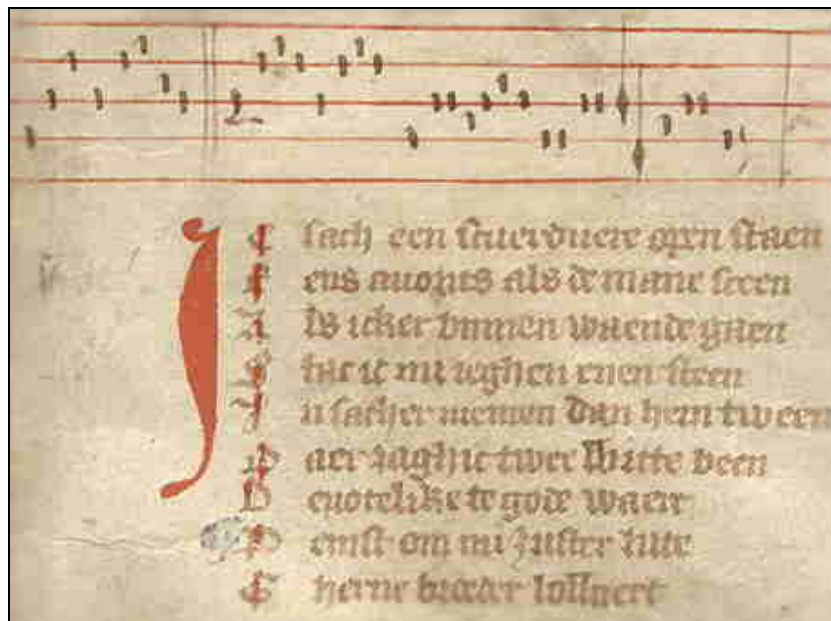 Ic sach een scuerduere open staen
Eens auonts als de mane sceen
Als icker binnen waende gaen
ic mi ieghen enen steen
In sacher niemen dan hem tween
Daer zaghic twee witte been
Deuotelike te gode waert
om mi zuster lute
Gherne broeder lollaert